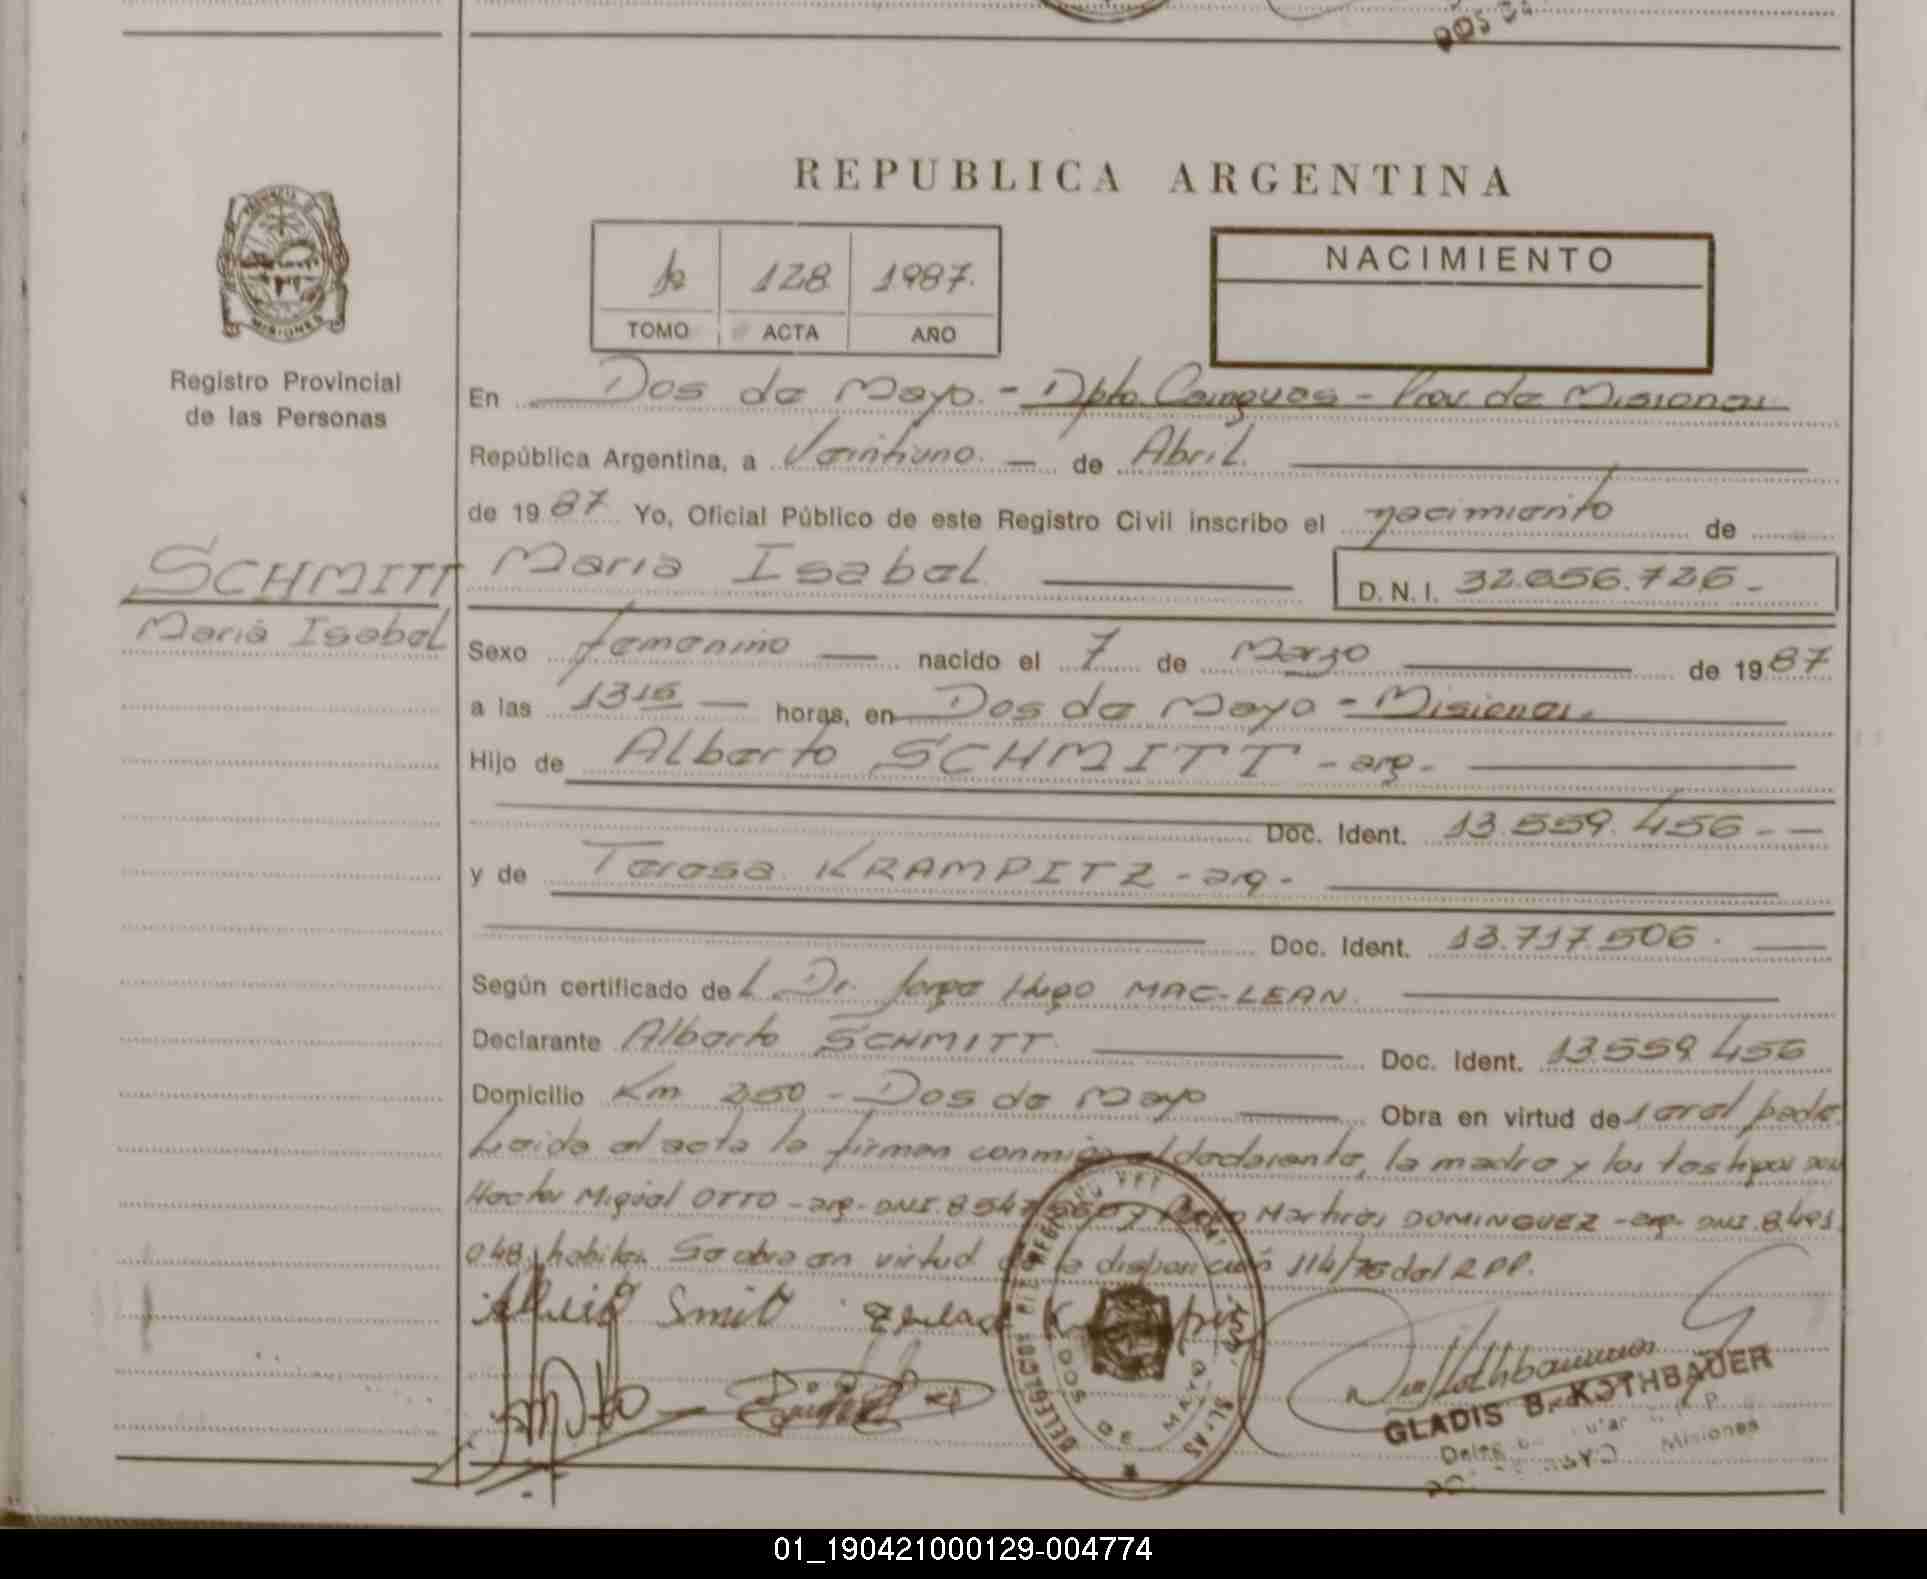 REPUBLICA ARGENTINA
PROVINCIA DE
MISIONES
Registro Provincial
de las Personas
128 1987.
TOMO ACTA AÑO
NACIMIENTO
En Dos de Mayo. - Dpto. Cainguas - Prov. de Misiones
República Argentina, a Veintiuno. — de Abril.
de 1987 Yo, Oficial Público de este Registro Civil inscribo el nacimiento de
SCHMITT
Maria Isabel
Maria Isabel D.N.I. 32.056.726.-
Sexo femenino — nacido el 7 de Marzo de 1987
a las 1315 — horas, en Dos de Mayo - Misiones.
Hijo de Alberto SCHMITT - arg.
Doc. Ident. 13.559.456.-
y de Teresa KRAMPITZ - arg.
Doc. Ident. 13.717.506.
Según certificado del Dr. Jorge Hugo MAC-LEAN.
Declarante Alberto SCHMITT Doc. Ident. 13.559.456
Domicilio Km 250 - Dos de Mayo Obra en virtud de
Leida el acta la firman conmigo el declarante, la madre y los testigos
Hector Miguel OTTO - arg - DNI. DOMINGUEZ - arg - DNI. 8.491.
048, habiles. Se obra en virtud de la disposición 114/76 del RPP.
Smit
DOS DE MAYO
GLADIS B. KOTHBAUER
Misiones
01_190421000129-004774